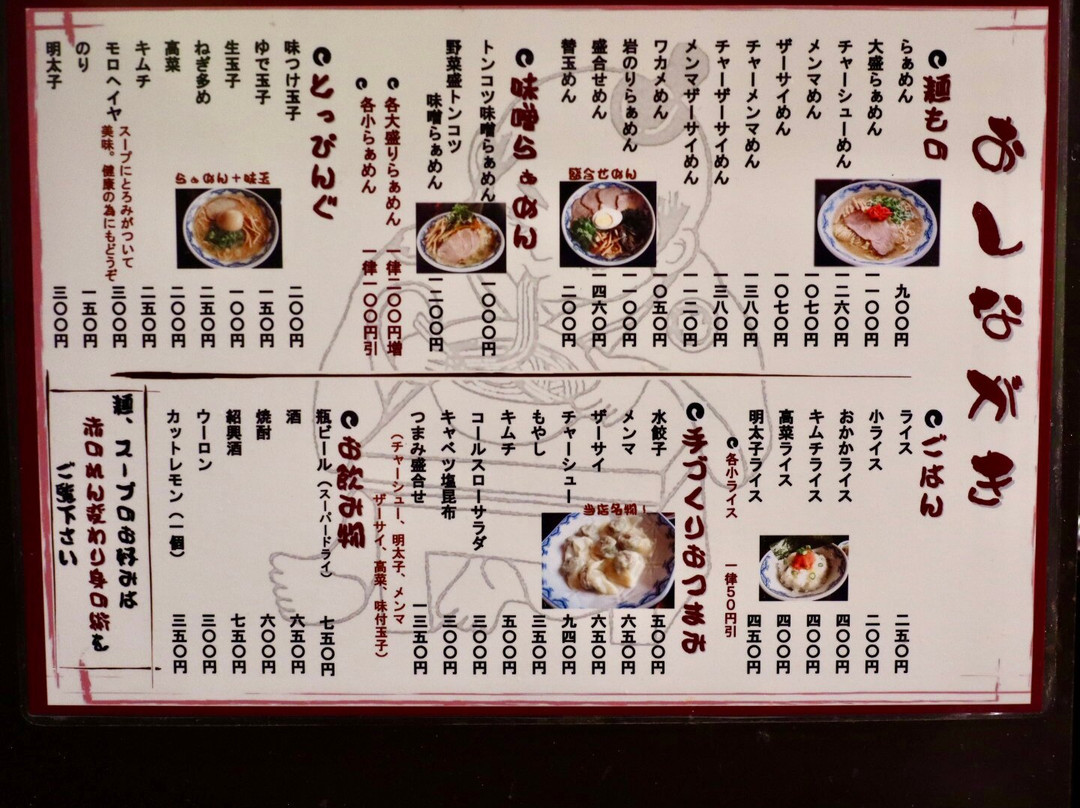 おしながき
麺もの
らぁめん 九〇〇円
大盛らぁめん 一一〇〇円
チャーシューめん 一二六〇円
メンマめん 一〇七〇円
ザーサイめん 一〇七〇円
チャーメンマめん 一三八〇円
チャーザーサイめん 一三八〇円
メンマザーサイめん 一一二〇円
ワカメめん 一〇五〇円
岩のりらぁめん 一一〇〇円
盛合せめん 一四六〇円
替玉めん 二〇〇円
盛合せめん
味噌らぁめん
トンコツ味噌らぁめん 一〇〇〇円
野菜盛トンコツ
味噌らぁめん 一二〇〇円
各大盛りらぁめん 一律二〇〇円増
各小らぁめん 一律一〇〇円引
とっぴんぐ
味つけ玉子 二〇〇円
ゆで玉子 一五〇円
生玉子 一〇〇円
ねぎ多め 二五〇円
高菜 二〇〇円
キムチ 二五〇円
モロヘイヤ 三〇〇円
スープにとろみがついて
美味。健康の為にもどうぞ
のり 一五〇円
明太子 三〇〇円
らぁめん+味玉
ごはん
ライス 二五〇円
小ライス 二〇〇円
おかかライス 四〇〇円
キムチライス 四〇〇円
高菜ライス 四〇〇円
明太子ライス 四五〇円
各小ライス 一律50円引
手づくりおつまみ
水餃子 五〇〇円
メンマ 六五〇円
ザーサイ 六五〇円
チャーシュー 九四〇円
もやし 三五〇円
キムチ 五〇〇円
コールスローサラダ 三〇〇円
キャベツ塩昆布 三〇〇円
つまみ盛合せ 一三五〇円
(チャーシュー、明太子、メンマ
ザーサイ、高菜、味付玉子)
当店名物!
お飲み物
瓶ビール(スーパードライ) 七五〇円
酒 六五〇円
焼酎 六〇〇円
紹興酒 七五〇円
ウーロン 三〇〇円
カットレモン(一個) 三五〇円
麺、スープのお好みは
赤のれん変わり身の術を
ご覧下さい